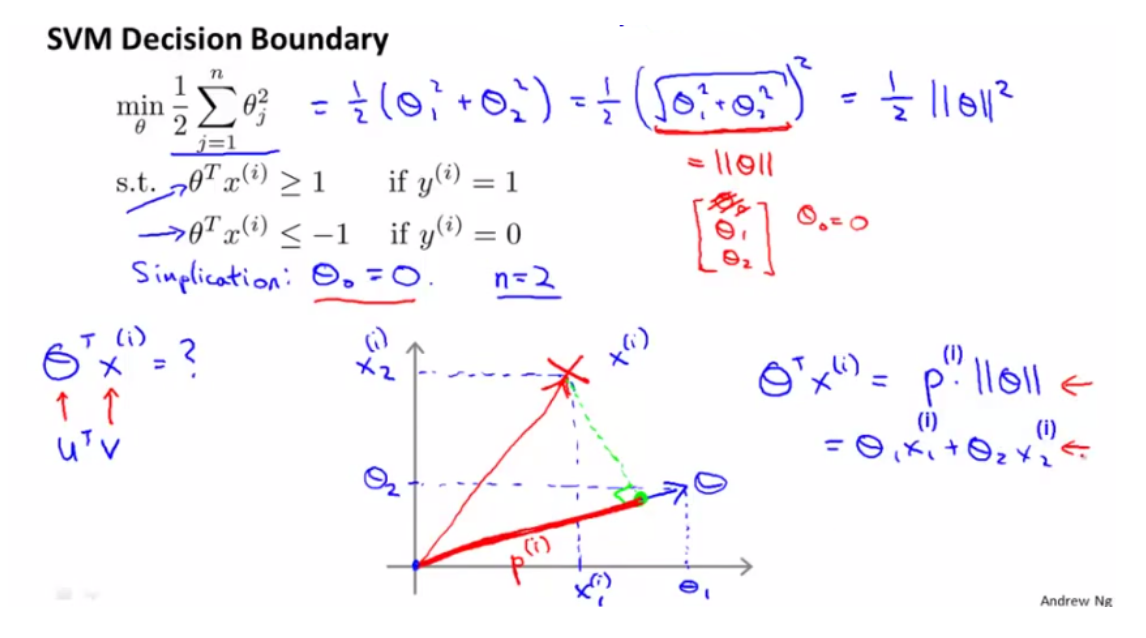 SVM Decision Boundary
min_θ 1/2 ∑_{j=1}^{n} θ_j^2 = 1/2 (θ_1^2 + θ_2^2) = 1/2 (√(θ_1^2 + θ_2^2))^2 = 1/2 ||θ||^2
= ||θ||
s.t. → θ^T x^(i) ≥ 1 if y^(i) = 1
→ θ^T x^(i) ≤ −1 if y^(i) = 0
[θ_1 θ_2] θ_0 = 0
Simplication: θ_0 = 0. n = 2
θ^T x^(i) = ?
↑ ↑
u^T v
x_2^(i)
x^(i)
θ_2
θ
p^(i)
x_1^(i)
θ_1
θ^T x^(i) = p^(i) · ||θ|| ←
= θ_1 x_1^(i) + θ_2 x_2^(i) ←
Andrew Ng